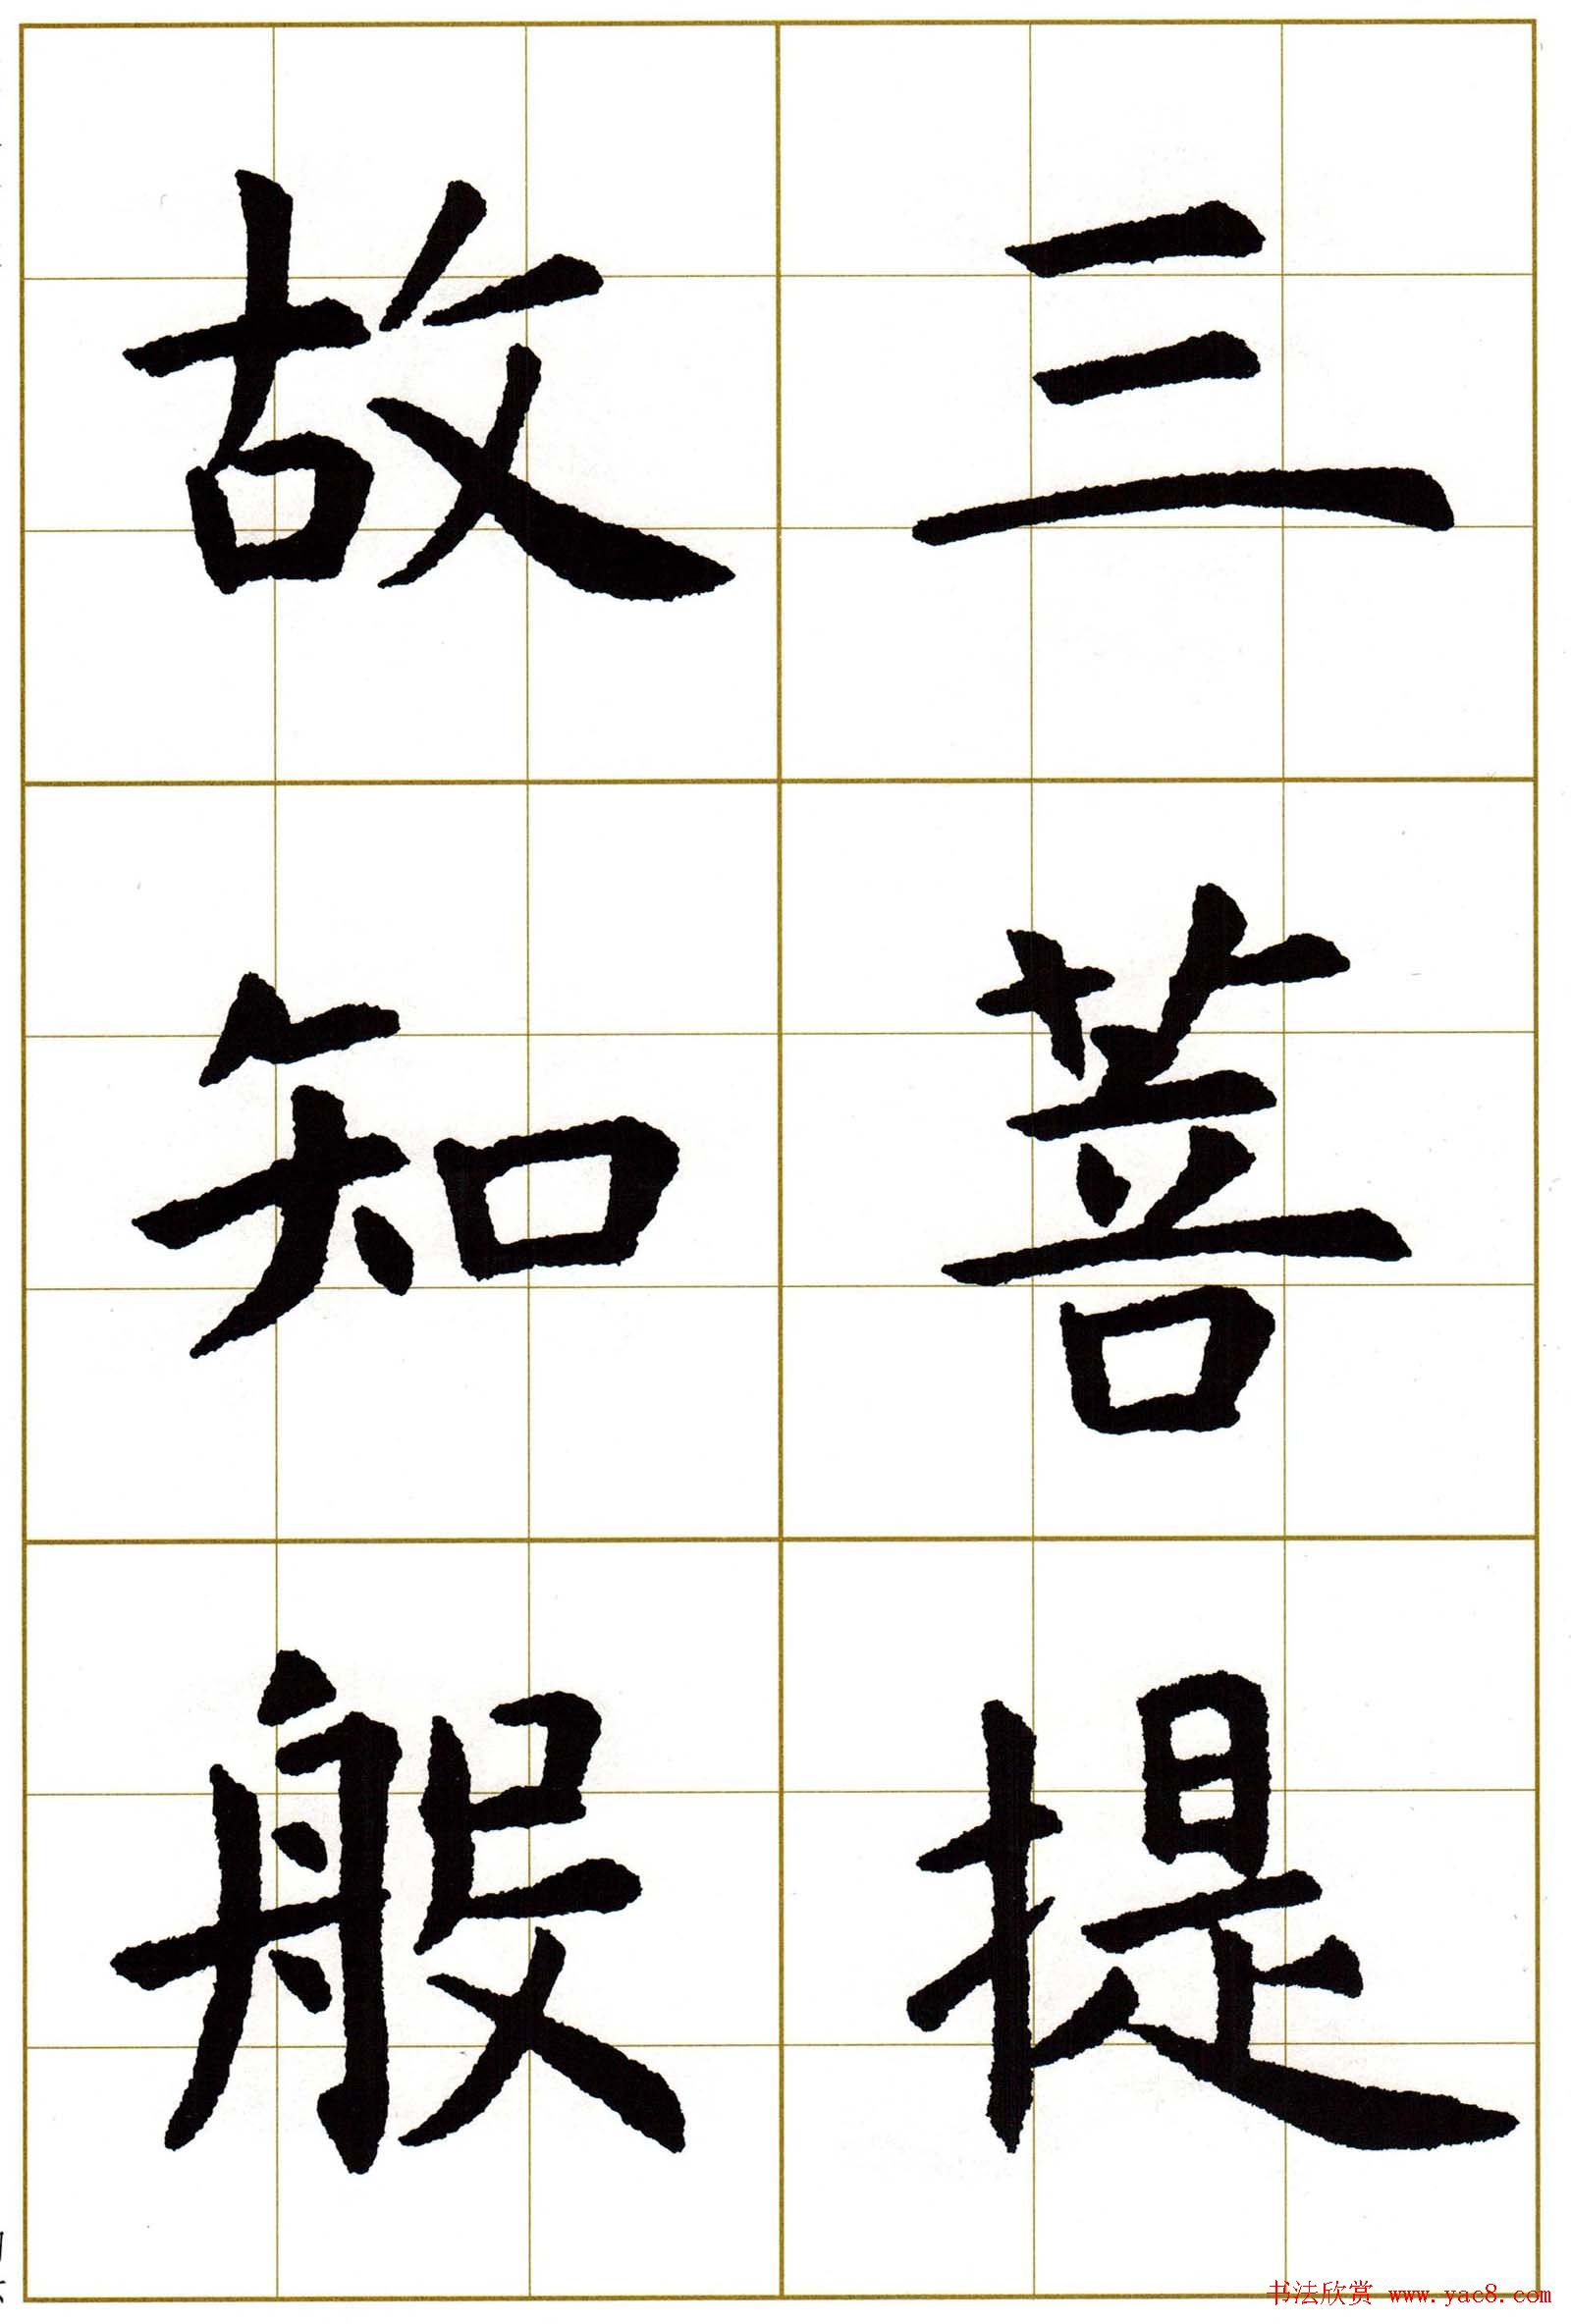 三菩提
故知般
书法欣赏 www.yac8.com